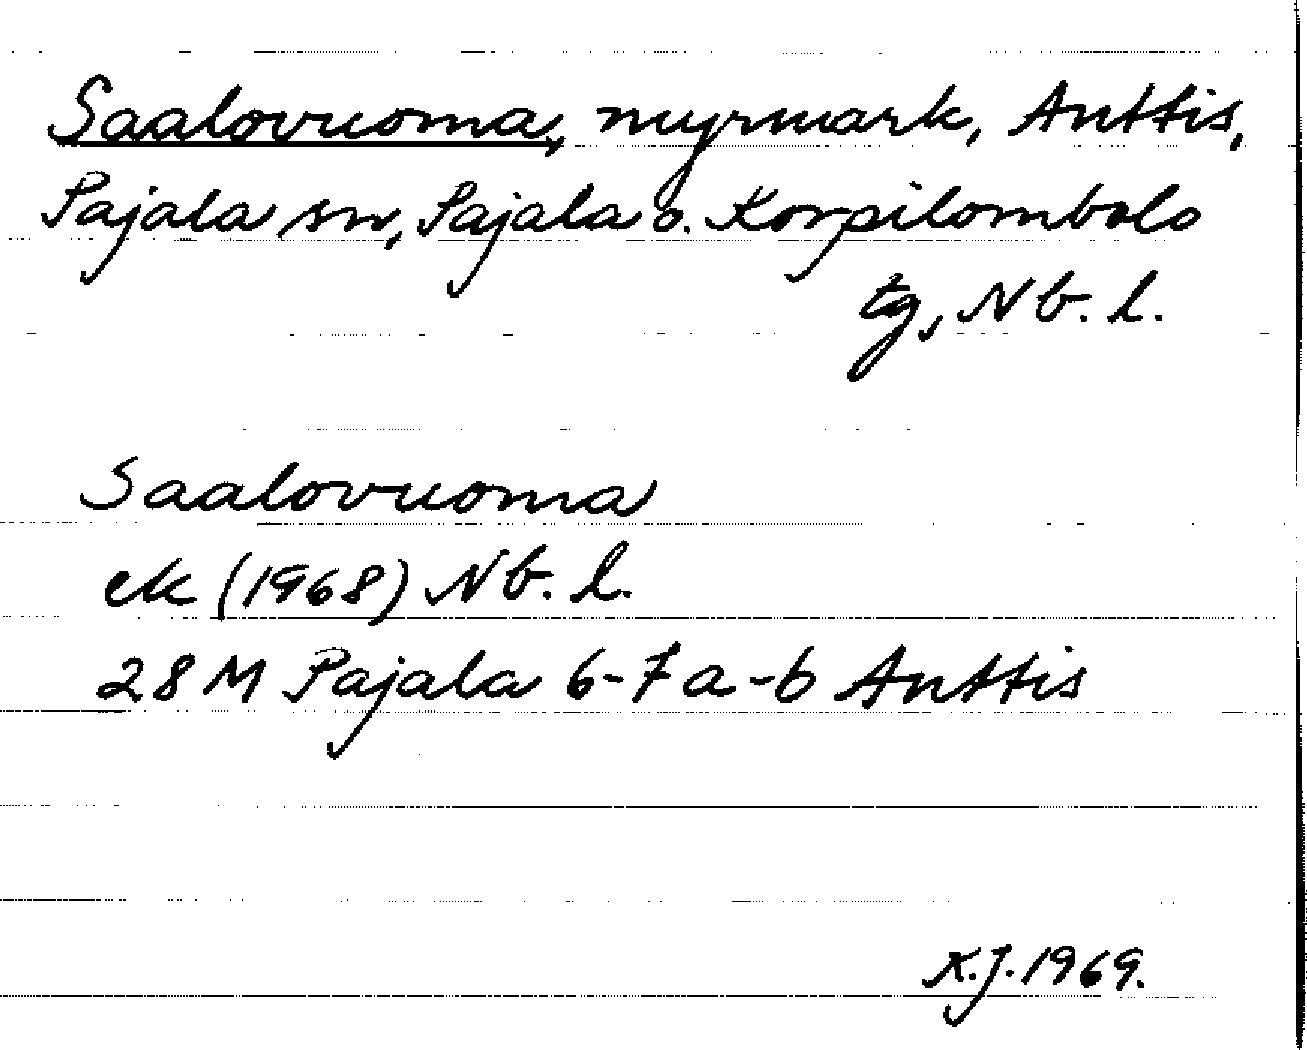 Saalovuoma, myrmark, Anttis,
Pajala sn, Pajala o. Korpilombolo
tg, Nb. l.
Saalovuoma
ek (1968) Nb. l.
28 M Pajala 6-7 a-b Anttis
K.J. 1969.